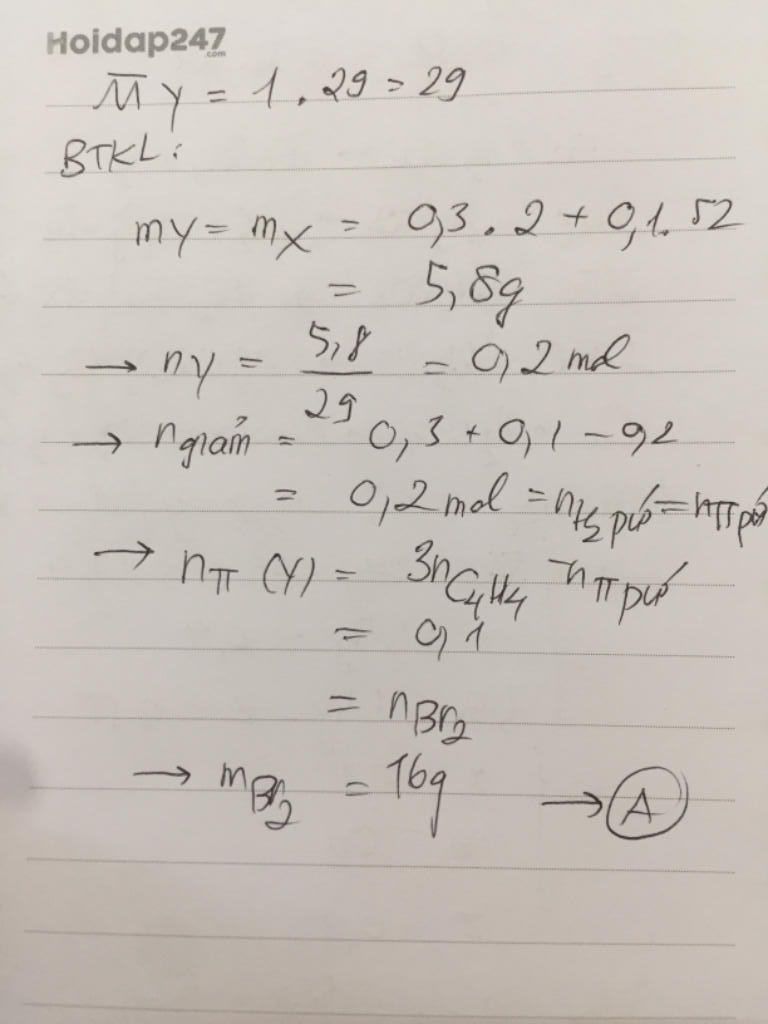 Hoidap247
.com
M̅ Y = 1 . 29 = 29
BTKL:
mY = mX = 0,3 . 2 + 0,1. 52
= 5,8g
→ nY = 5,8/29 = 0,2 mol
→ n giảm = 0,3 + 0,1 - 0,2
= 0,2 mol = nH2 pứ = nπ pứ
→ nπ (Y) = 3nC4H4 - nπ pứ
= 0,1
= nBr2
→ mBr2 = 16g → A